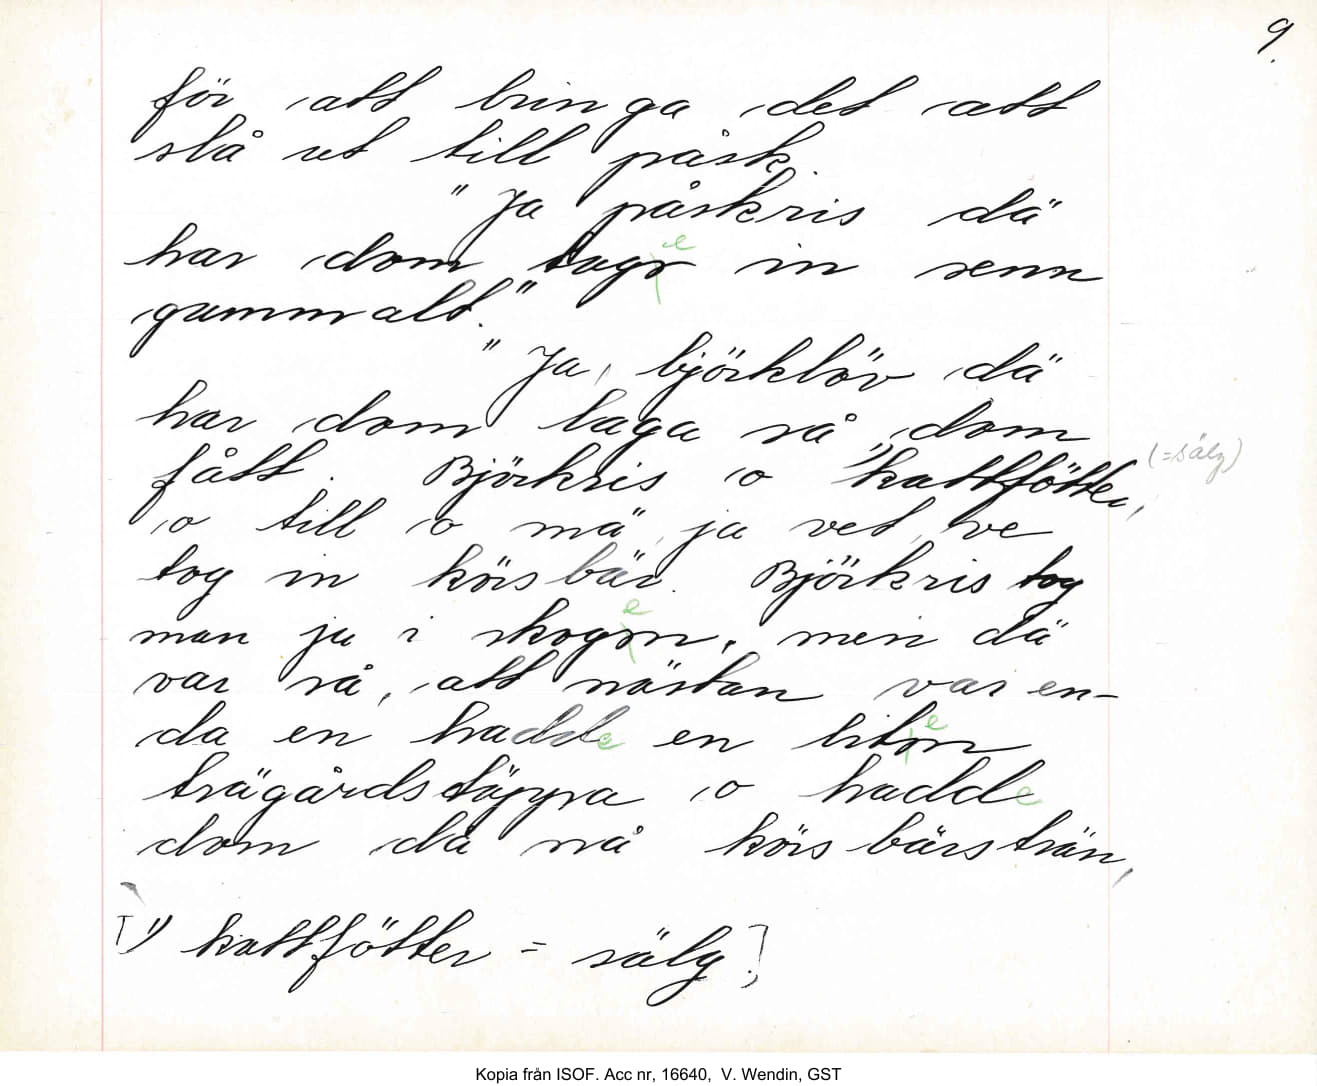 9.
för att bringa det att
slå ut till påsk.
"Ja påskris dä
har dom tage in senn
gammalt."
"Ja, björklöv dä
har dom laga så dom
fått. Björkris o 1) kattfötter, (=sälg)
o till o mä, ja vet, ve
tog in körsbär. Björkris tog
man ju i skogen, men dä
var så, att nästan var en-
da en hadde en liten
trägårdstäppa o hadde
dom då nå körsbärsträn,
[1) kattfötter = sälg.]
Kopia från ISOF. Acc nr, 16640, V. Wendin, GST